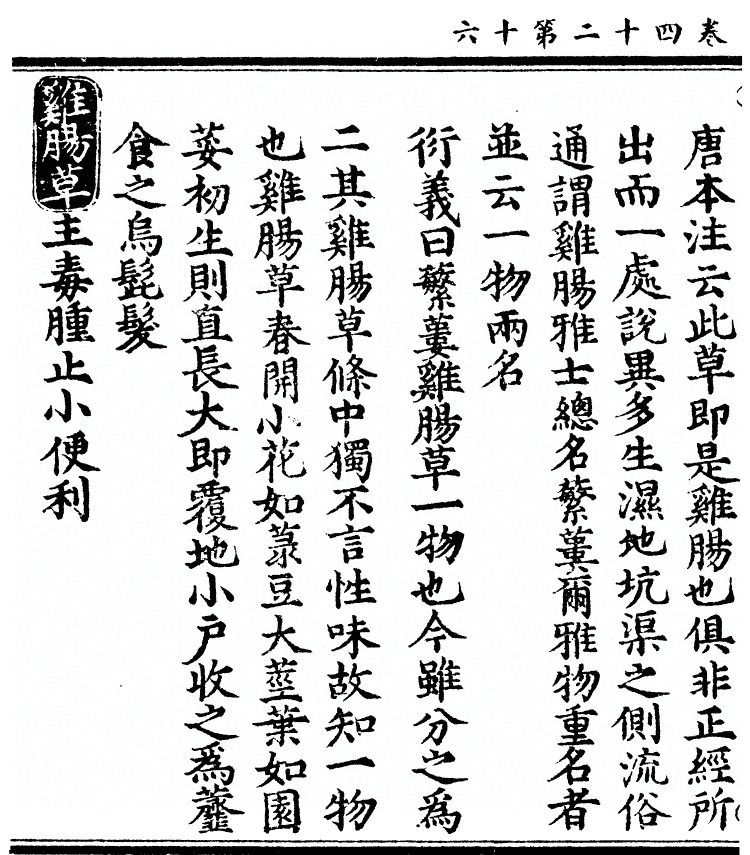 卷四十二第十六
唐本注云此草即是雞腸也俱非正經所
出而一處說異多生濕地坑渠之側流俗
通謂雞腸雅士總名繁蔞爾雅物重名者
並云一物兩名
衍義曰繁蔞雞腸草一物也今雖分之爲
二其雞腸草條中獨不言性味故知一物
也雞腸草春開小花如菉豆大莖葉如園
荽初生則直長大即覆地小戶收之爲虀
食之烏髭髮
雞腸草主毒腫止小便利